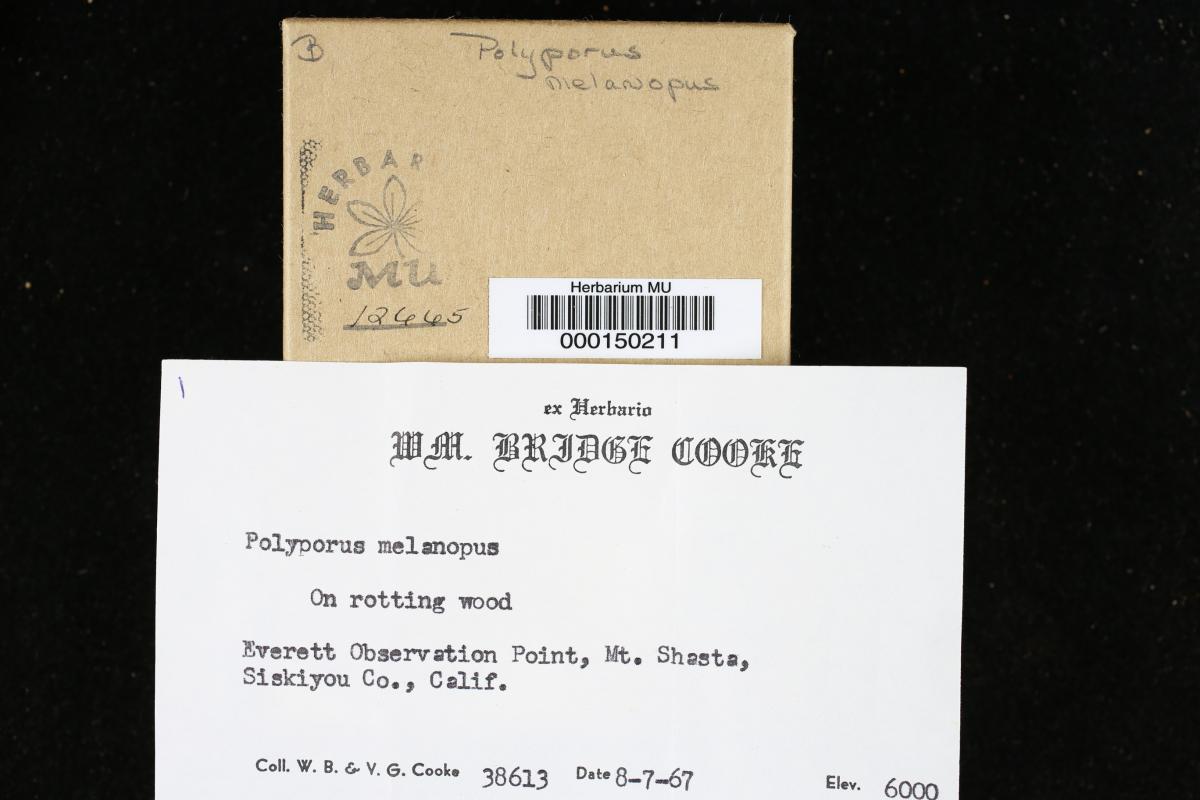 B
Polyporus
melanopus
HERBAR
MU
12445
Herbarium MU
000150211
1
ex Herbario
WM. BRIDGE COOKE
Polyporus melanopus
On rotting wood
Everett Observation Point, Mt. Shasta,
Siskiyou Co., Calif.
Coll. W. B. & V. G. Cooke 38613 Date 8-7-67 Elev. 6000